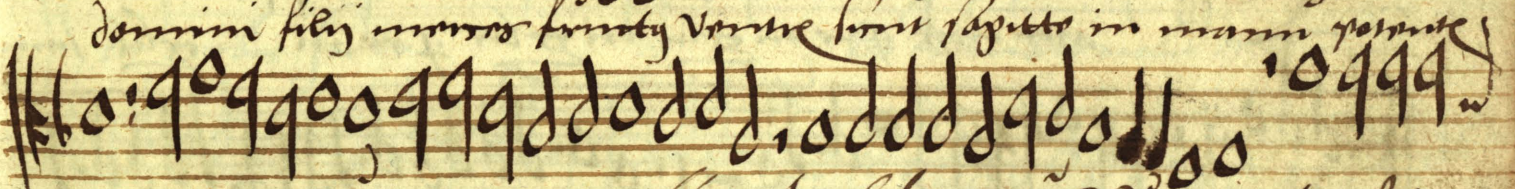 domini filij merces fructꝯ ventrꝭ sicut sagitte in manu potentꝭ